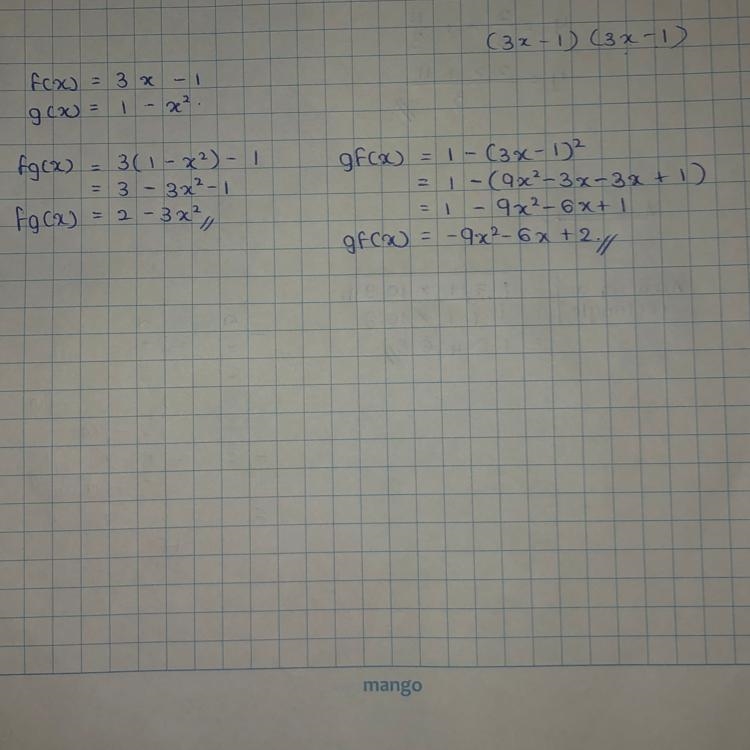 (3x - 1) (3x - 1)
f(x) = 3x - 1
g(x) = 1 - x².
fg(x) = 3(1 - x²) - 1
= 3 - 3x² - 1
fg(x) = 2 - 3x² //
gf(x) = 1 - (3x - 1)²
= 1 - (9x² - 3x - 3x + 1)
= 1 - 9x² - 6x + 1
gf(x) = -9x² - 6x + 2. //
mango